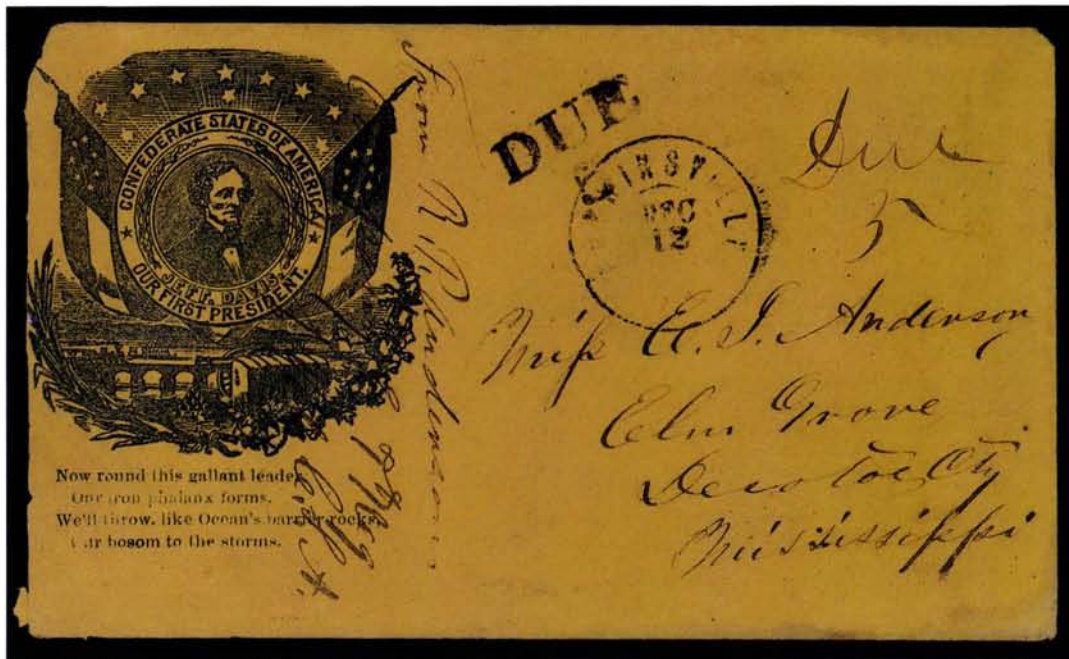 CONFEDERATE STATES OF AMERICA
JEFF. DAVIS.
OUR FIRST PRESIDENT.
Now round this gallant leader
Our iron phalanx forms.
We'll throw, like Ocean's barrier rocks,
Our bosom to the storms.
From R. P. Anderson
C. S. A.
DUE
DEC
12
Due
5
Miss A. S. Anderson
Elm Grove
Desoto Cty
Mississippi